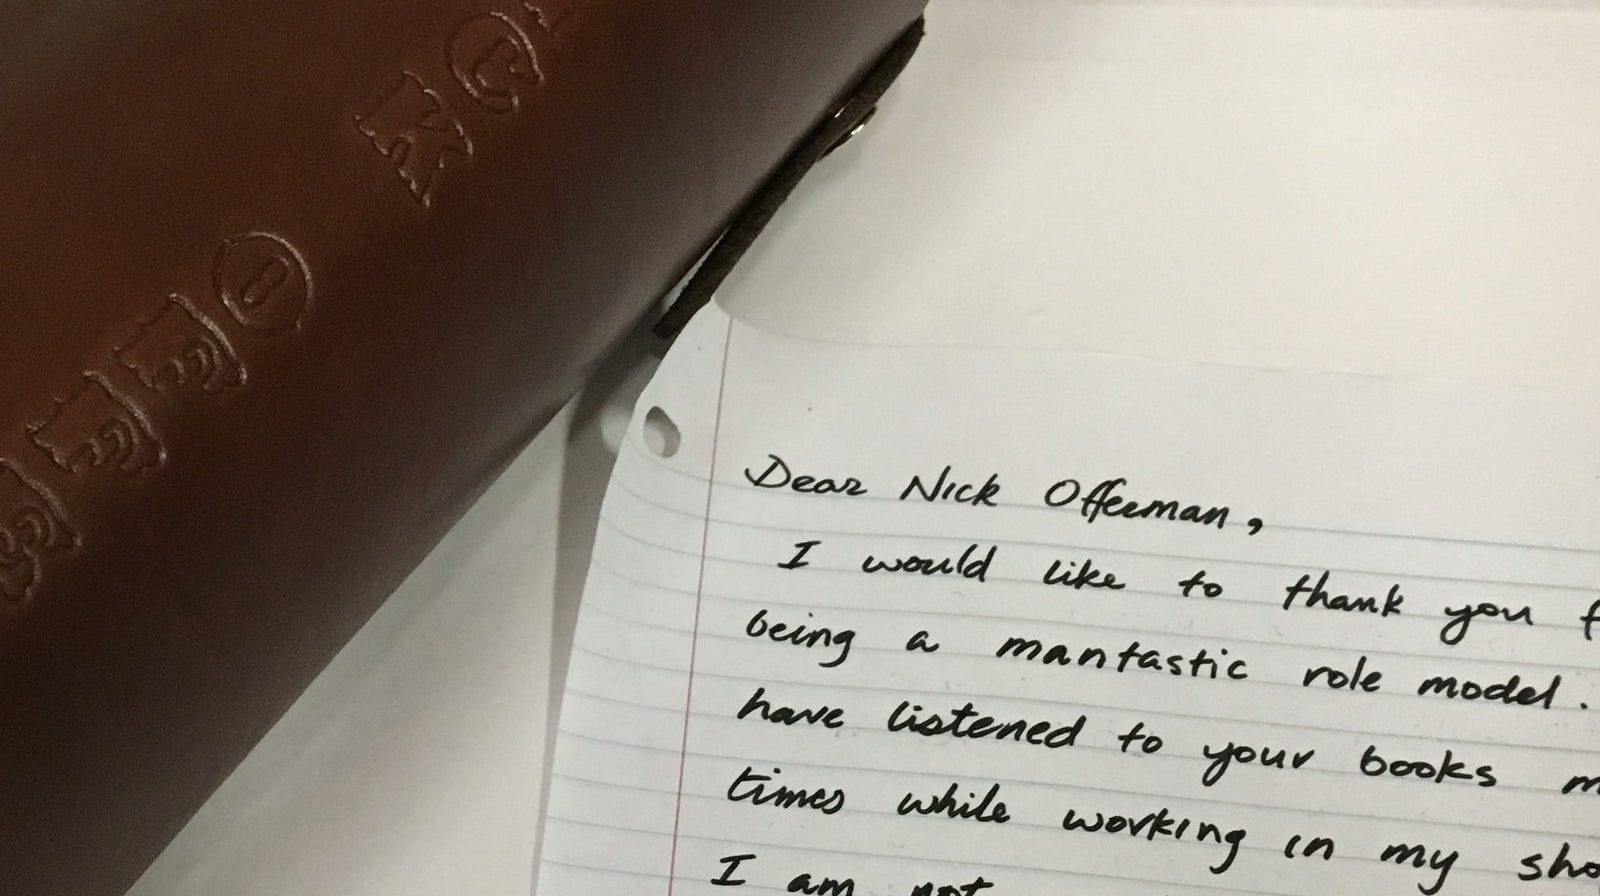 Dear Nick Offerman,
I would like to thank you
being a mantastic role model.
have listened to your books
times while working in my
I am not